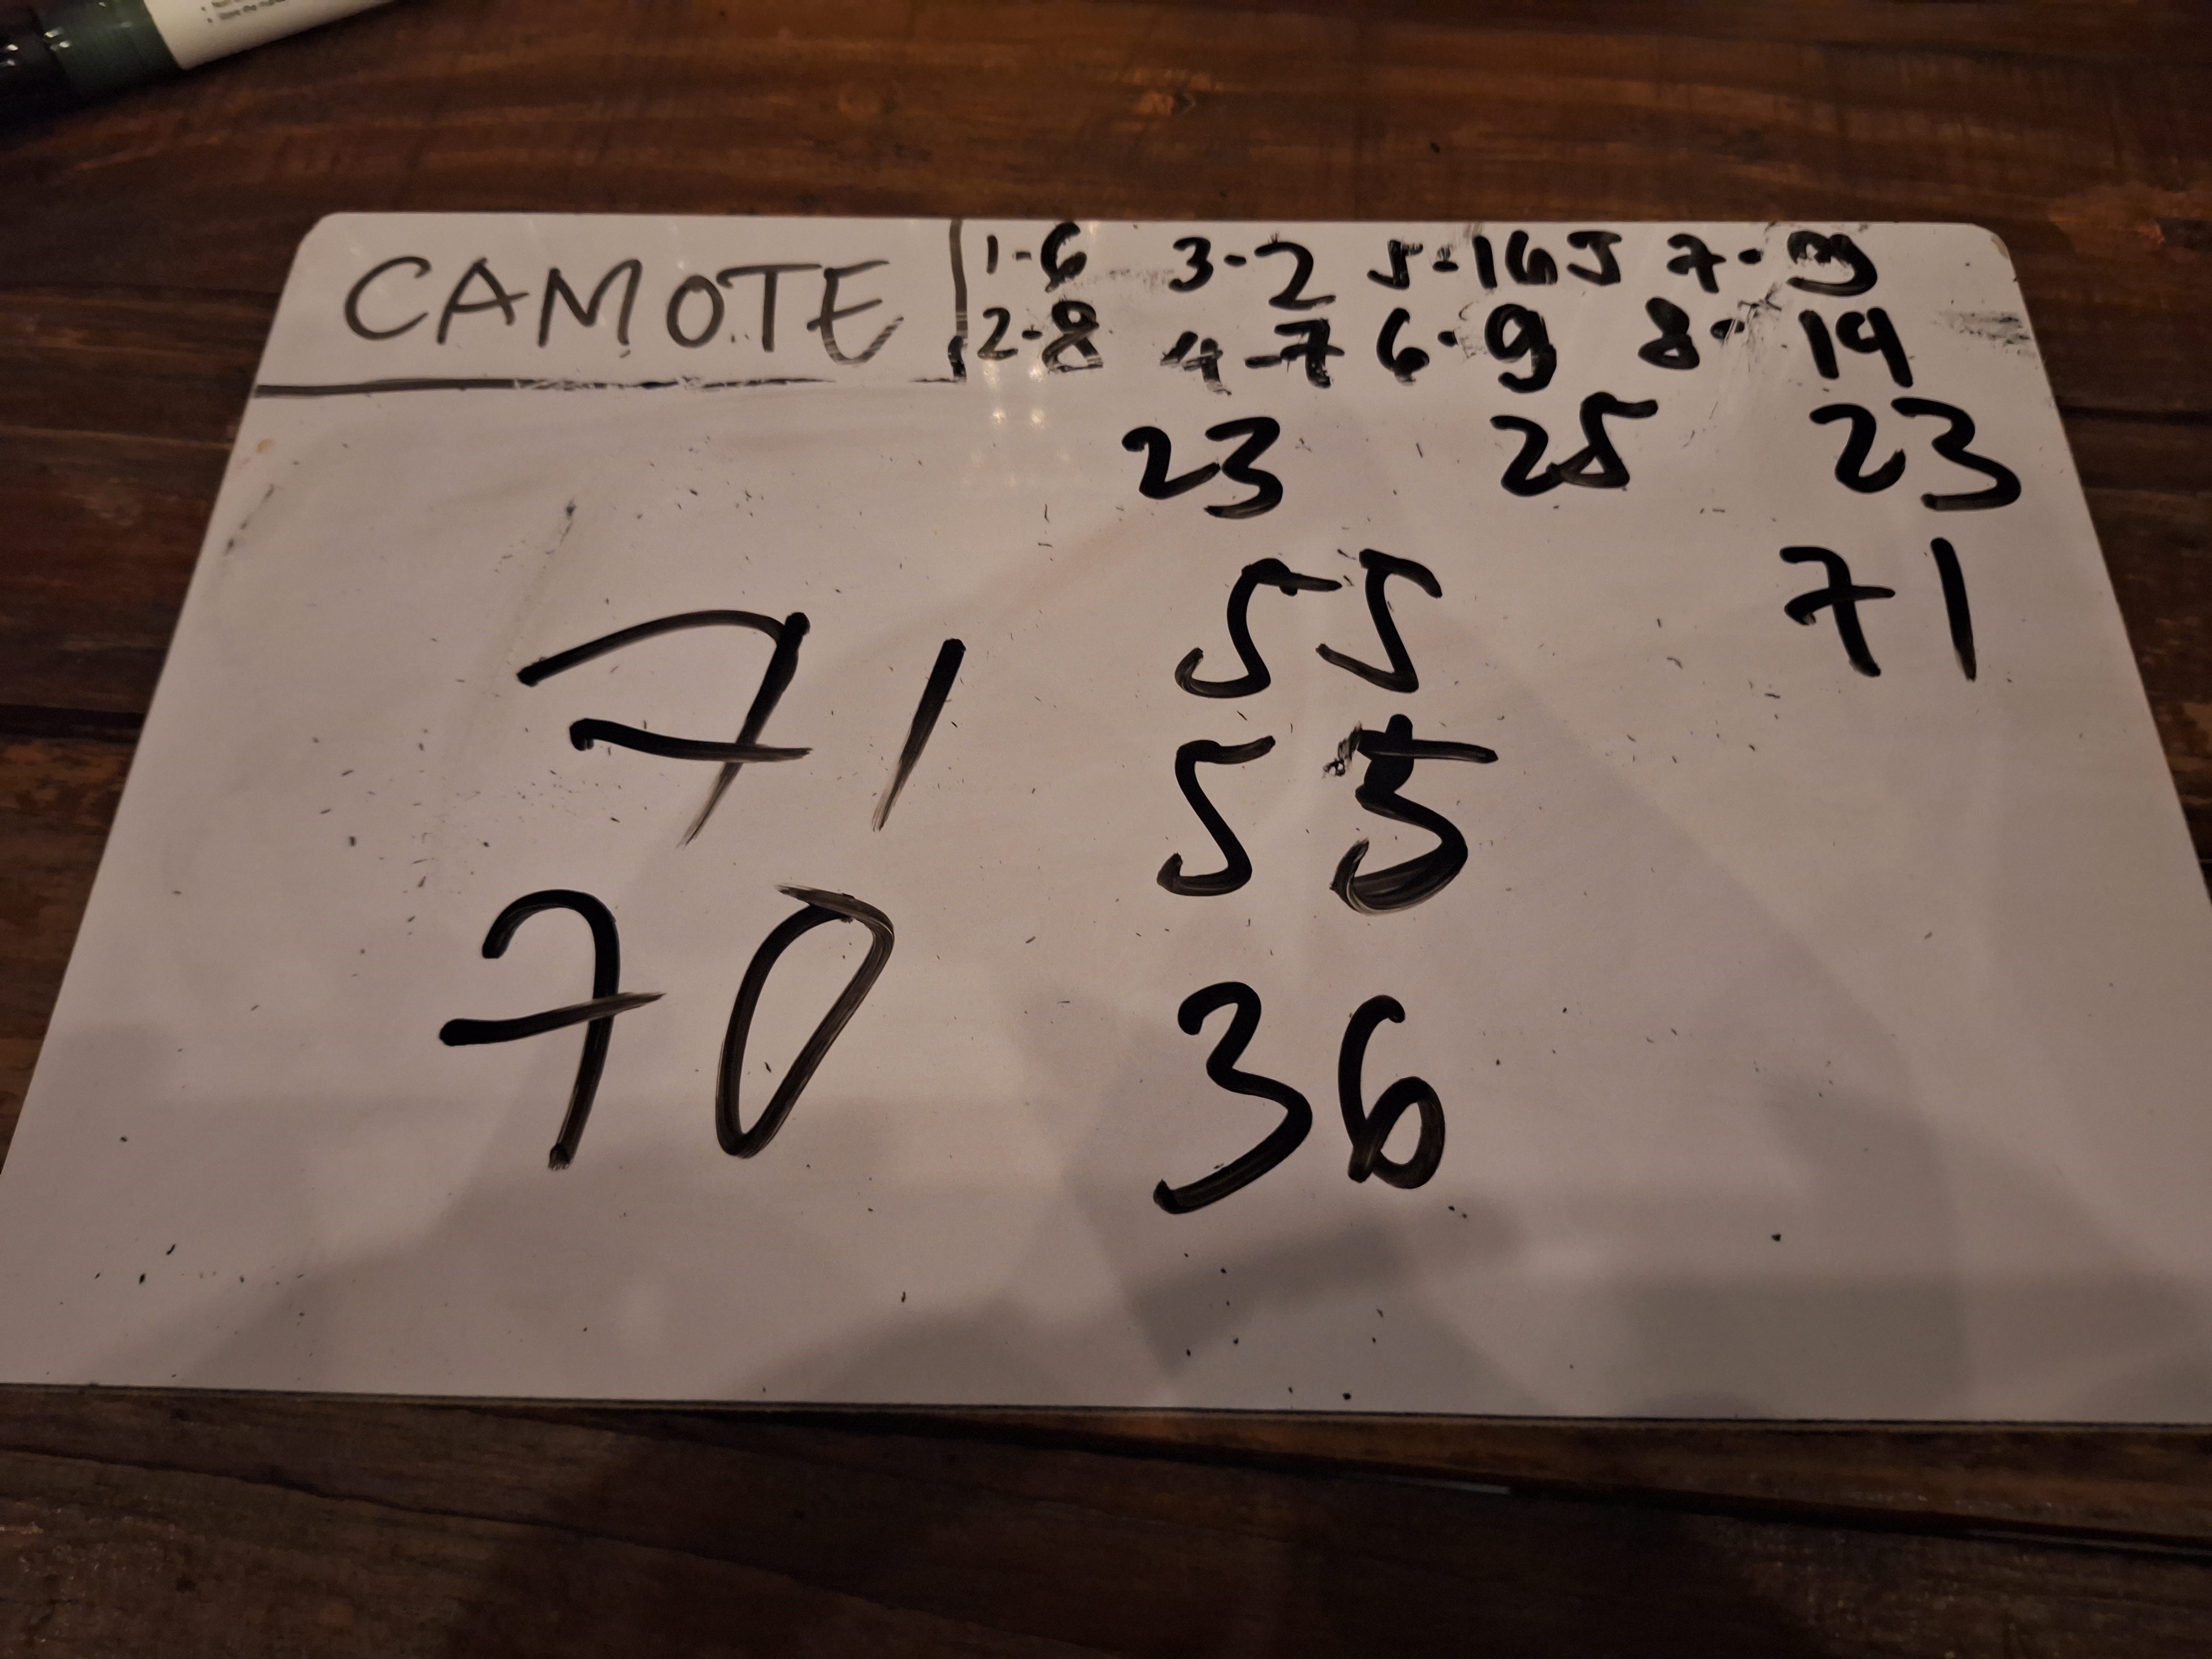 CAMOTE
1-6 3-2 5-165 7-9
2-8 4-7 6-9 8-14
23 25 23
71 55 71
55
70 36